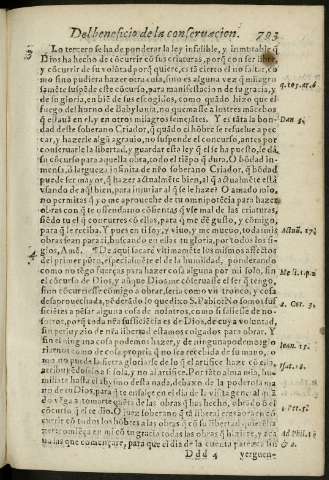 Del beneficio de la conseruacion. 793
3 Lo tercero se ha de ponderar la ley infalible, y inmutable q̃
Dios ha hecho de cõcurrir cõ sus criaturas, porq̃ con ser libre,
y cõcurrir de su volũtad porq̃ quiere, es tã cierto el no faltar, co
mo sino pudiera hazer otra cosa, sino es alguna vez q̃ milagro
samẽte suspẽde este cõcurso, para manifestacion de su gracia, y
de su gloria, en biẽ de sus escogidos, como quãdo hizo que el
fuego del horno de Babylonia, no quemasse a los tres mãcebos
q̃ estauã en el, y en otros milagros semejãtes. Y es tãta la bon-
dad deste soberano Criador, q̃ quãdo el hõbre se resuelue a pec
car, y hazerle algũ agrauio, no suspende el concurso, antes por
conseruarle la libertad, y guardar esta ley q̃ el se ha puesto, le dà
su cõcurso para aquella obra, todo el tiẽpo q̃ dura. O bõdad in-
mensa, ò largueza infinita de nr̃o soberano Criador, q̃ bõdad
puede ser mayor, q̃ hazer actualmẽte bien, al q̃ actualmẽte està
vsando de aq̃l bien, para injuriar al q̃ se le haze? O amado mio,
no permitas q̃ yo me aproueche de tu omnipotẽcia para hazer
obras con q̃ te ofenda, no cõsientas q̃ vse mal de las criaturas,
siẽdo tu el q̃ concurres cõ ellas, para q̃ me dẽ gusto, y cõmigo,
para q̃ le reciba. Y pues en ti soy, y viuo, y me mueuo, todas mis
obras sean para ti, buscando en ellas tu gloria, por todos los si-
glos, Amẽ. ¶ De aqui sacarè viuamente los mismos affectos
4. del primer pũto, especialmẽte el de la humildad, ponderando
como no tẽgo fuerças para hazer cosa alguna por mi solo, sin
el cõcurso de Dios, y aunque Dios me cõseruasse el ser q̃ tengo,
sino cõcurriesse cõmigo a obrar, seria como vn tronco, y cosa
desaprouechada, põderãdo lo que dixo S. Pablo: No somos suf
ficiẽtes a pẽsar alguna cosa de nosotros, como si saliesse de no-
sotros, porq̃ toda nr̃a sufficiẽcia es de Dios, de cuya volũtad,
sin perjuyzio de nr̃a libertad estamos colgados para obrar. Y
sin el ninguna cosa podemos hazer, y de ninguna podemos glo
riarnos como de cosa propria q̃ no sea recebida de su mano, co
mo no puede la sierra gloriarse de lo q̃ el artifice haze cõ ella,
atribuyẽdolo a si sola, y no al artifice. Por tãto alma mia, hu-
millate hasta el abysmo desta nada, debaxo de la poderosa ma
no de tu Dios, para q̃ te ensalçe en el dia de la visita general quã
do vẽga a tomarte quẽta de las obras q̃ has hecho, obrado cõ el
cõcurso q̃ el te dio. O juez soberano q̃ tã liberal eres aora en cõ
currir cõ todos los hõbres a las obras q̃ cõ su libertad quierẽ ha
zer: comiẽça en mi cõ tu gracia todas las obras q̃ hiziere, y aca
ua las que començare, para que el dia de la cuenta parezca sin
Ddd 4 verguen-
Dan. 4.
Ioan. 15.